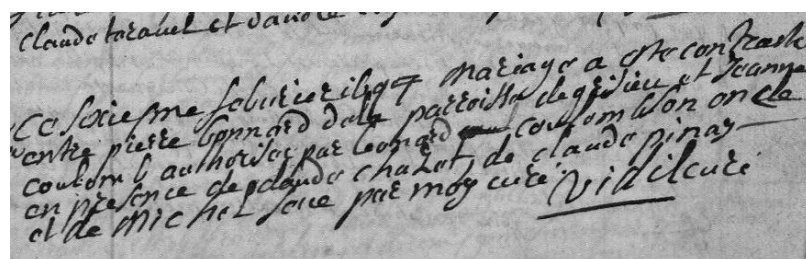 claude taravel et d'andre
Ce sixiesme feburier 1697 mariage a este contracte
entre pierre bonnard de la parroisse de grisieu et Jeanne
coulomb authorisee par leonard coulomb son oncle
en presence de claude chazet, de claude pinay
et de Michel seue par moy curé. Vidil curé